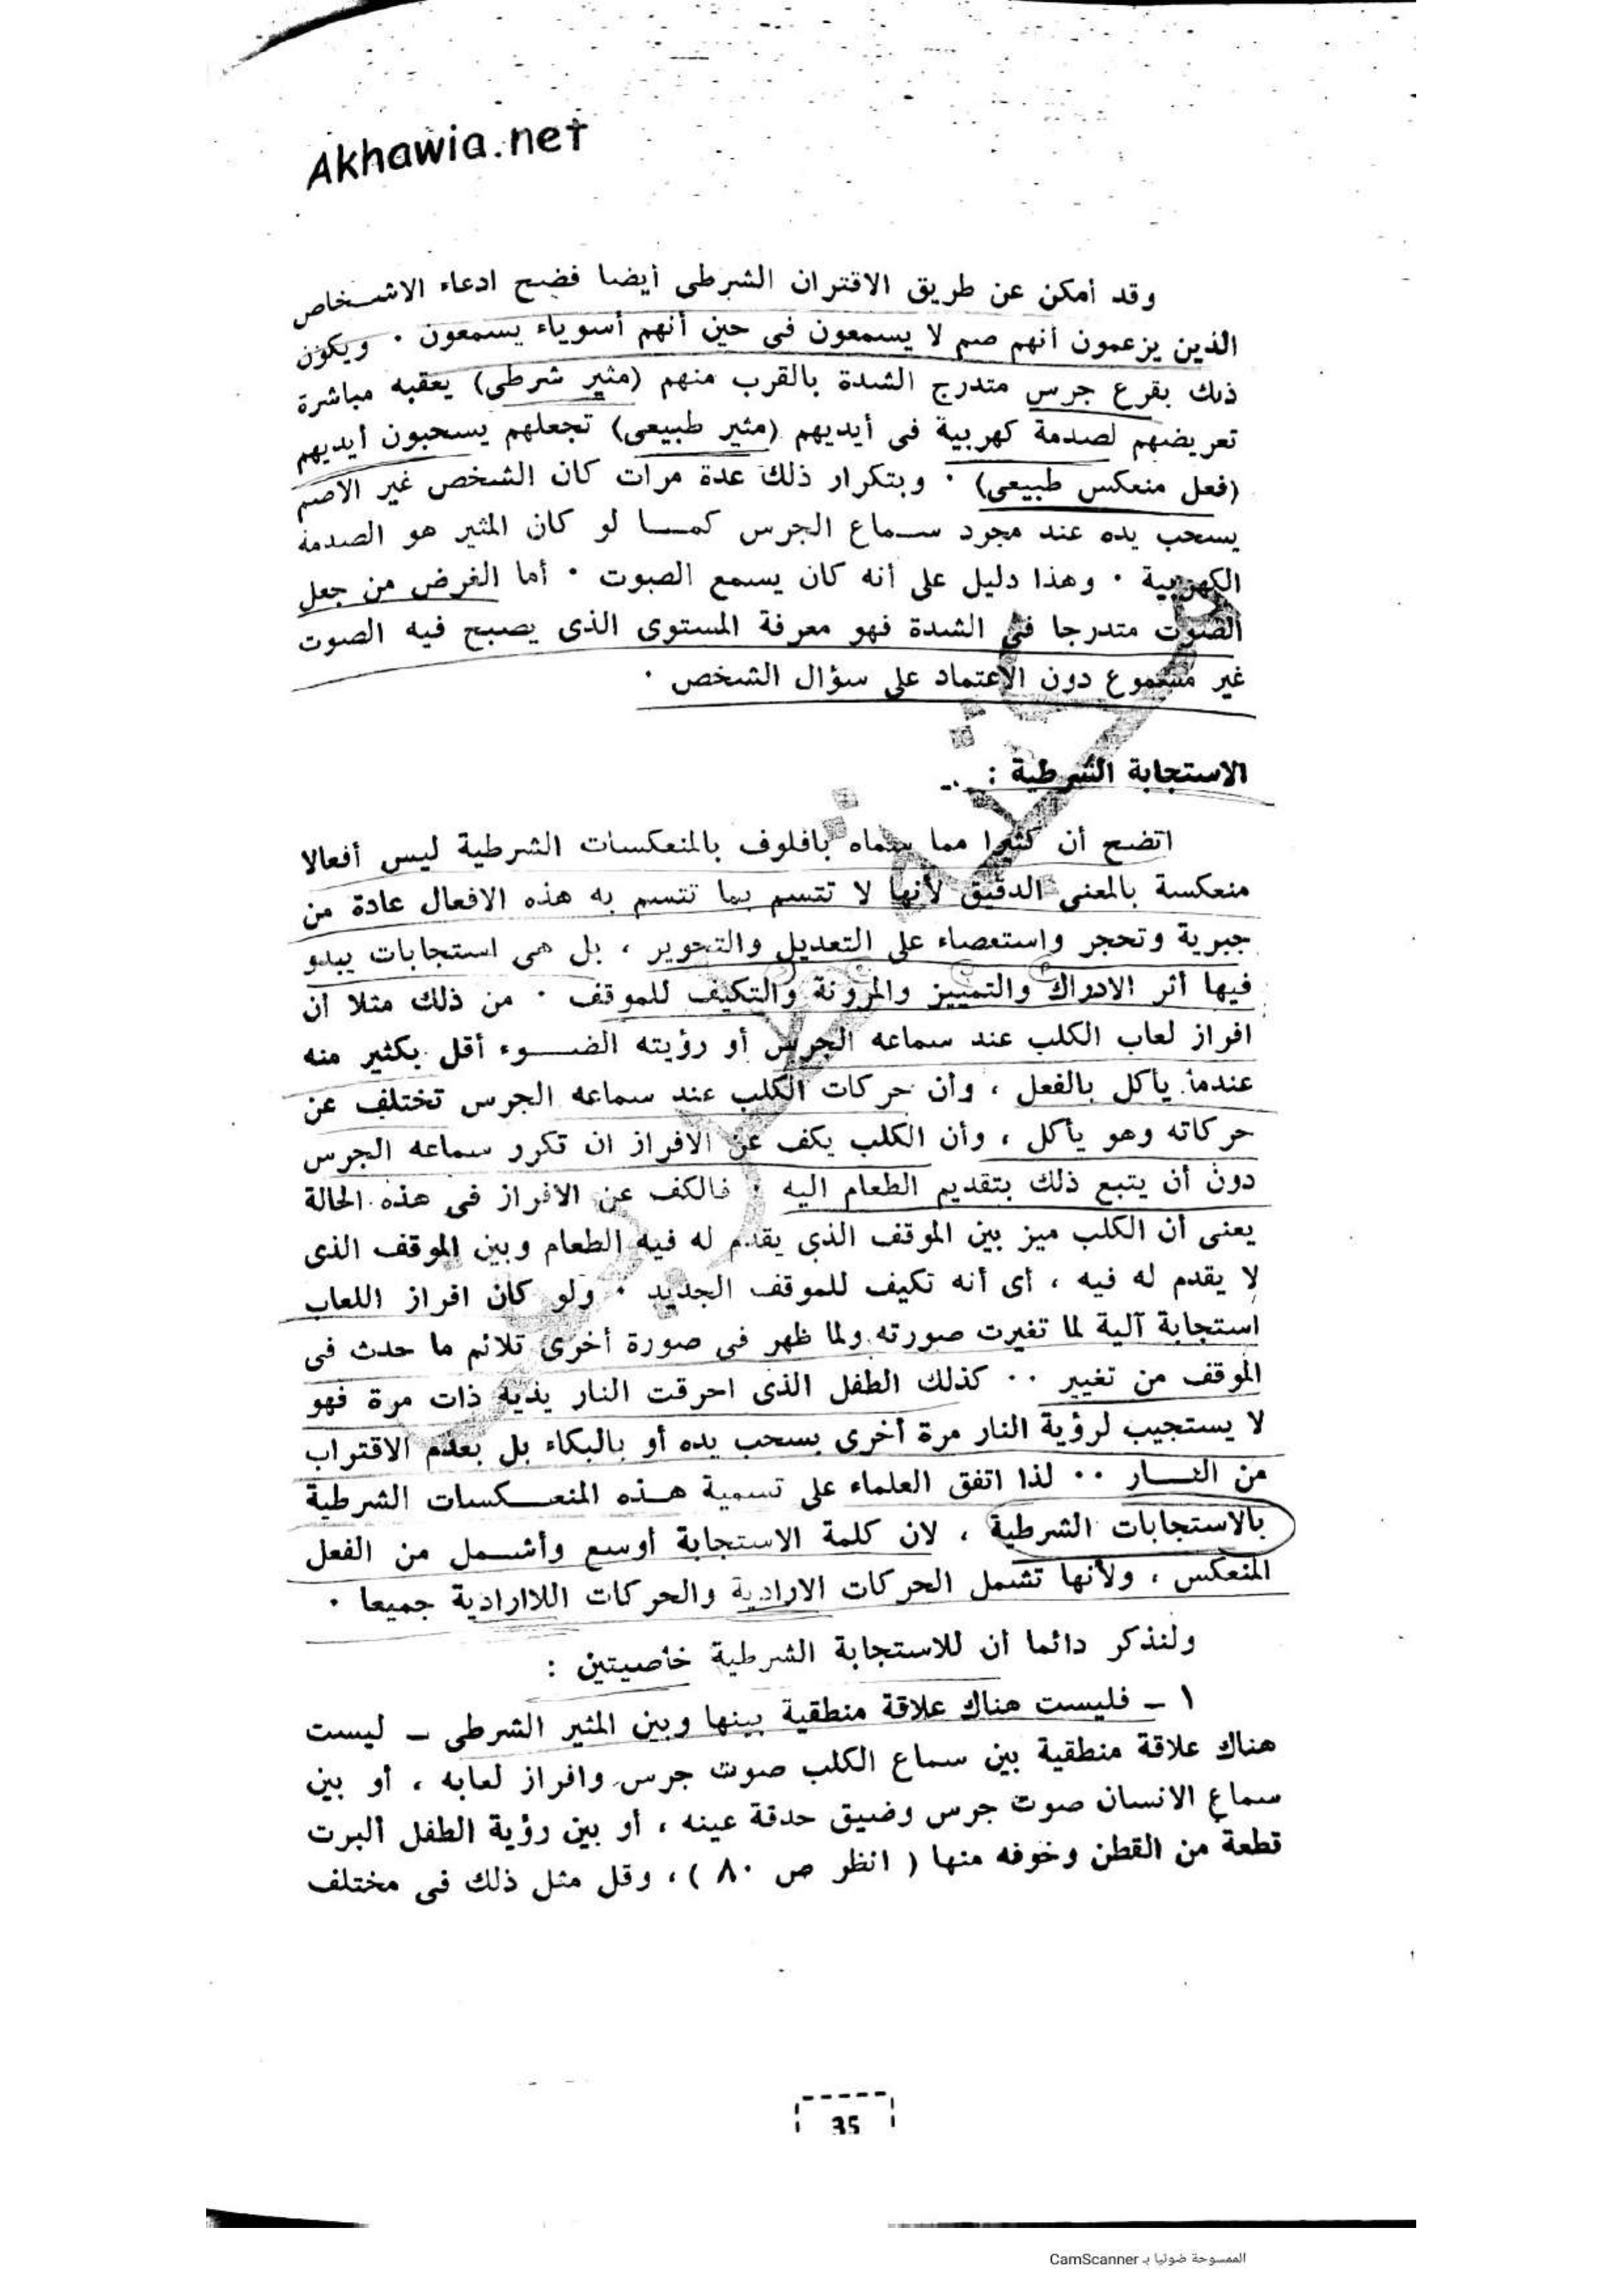 Akhawia.net
وقد أمكن عن طريق الاقتران الشرطى أيضا فضح ادعاء الاشـخاص
الذين يزعمون أنهم صم لا يسمعون فى حين أنهم أسوياء يسمعون ٠ ويكون
ذلك بقرع جرس متدرج الشدة بالقرب منهم (مثير شرطى) يعقبه مباشرة
تعريضهم لصدمة كهربية فى أيديهم (مثير طبيعى) تجعلهم يسحبون أيديهم
(فعل منعكس طبيعى) ٠ وبتكرار ذلك عدة مرات كان الشخص غير الاصم
يسحب يده عند مجرد سـماع الجرس كمـا لو كان المثير هو الصدمة
الكهربية ٠ وهذا دليل على أنه كان يسمع الصوت ٠ أما الغرض من جعل
الصوت متدرجا فى الشدة فهو معرفة المستوى الذى يصبح فيه الصوت
غير مسموع دون الاعتماد على سؤال الشخص ٠
الاستجابة الشرطية :
اتضح أن كثيرا مما سماه بافلوف بالمنعكسات الشرطية ليس أفعالا
منعكسة بالمعنى الدقيق لأنها لا تتسم بما تتسم به هذه الافعال عادة من
جبرية وتحجر واستعصاء على التعديل والتحوير ، بل هى استجابات يبدو
فيها أثر الادراك والتمييز والمرونة والتكيف للموقف ٠ من ذلك مثلا أن
افراز لعاب الكلب عند سماعه الجرس أو رؤيته الضـوء أقل بكثير منه
عندما يأكل بالفعل ، وأن حركات الكلب عند سماعه الجرس تختلف عن
حركاته وهو يأكل ، وأن الكلب يكف عن الافراز ان تكرر سماعه الجرس
دون أن يتبع ذلك بتقديم الطعام اليه ٠ فالكف عن الافراز فى هذه الحالة
يعنى أن الكلب ميز بين الموقف الذى يقدم له فيه الطعام وبين الموقف الذى
لا يقدم له فيه ، أى أنه تكيف للموقف الجديد ٠ ولو كان افراز اللعاب
استجابة آلية لما تغيرت صورته ولما ظهر فى صورة أخرى تلائم ما حدث فى
الموقف من تغيير ٠٠ كذلك الطفل الذى احرقت النار يديه ذات مرة فهو
لا يستجيب لرؤية النار مرة أخرى بسحب يده أو بالبكاء بل بعدم الاقتراب
من النـار ٠٠ لذا اتفق العلماء على تسمية هـذه المنعـكسات الشرطية
بالاستجابات الشرطية ، لان كلمة الاستجابة أوسع وأشـمل من الفعل
المنعكس ، ولأنها تشمل الحركات الارادية والحركات اللاارادية جميعا ٠
ولنذكر دائما أن للاستجابة الشرطية خاصيتين :
١ ـ فليست هناك علاقة منطقية بينها وبين المثير الشرطى ـ ليست
هناك علاقة منطقية بين سماع الكلب صوت جرس وافراز لعابه ، أو بين
سماع الانسان صوت جرس وضيق حدقة عينه ، أو بين رؤية الطفل ألبرت
قطعة من القطن وخوفه منها ( انظر ص ٨٠ ) ، وقل مثل ذلك فى مختلف
35
الممسوحة ضوئيا بـ CamScanner